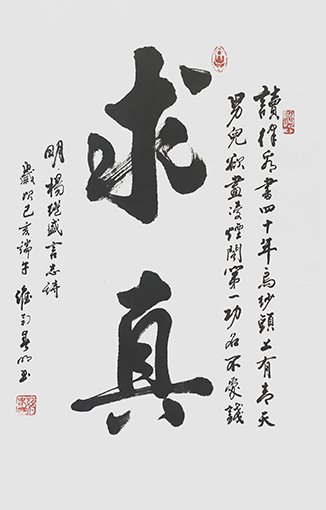 讀律看書四十年烏紗頭上有青天
男兒欲畫凌煙閣第一功名不愛錢
求真
明楊继盛言志詩
歲次己亥端午